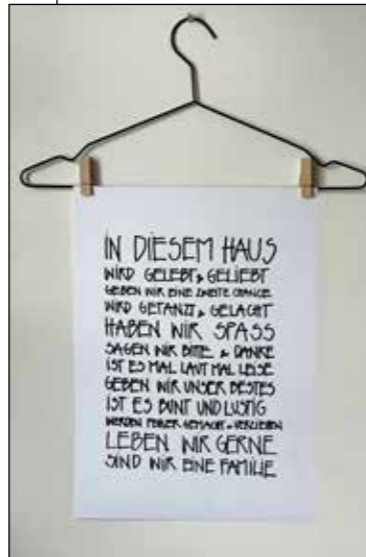 IN DIESEM HAUS
WIRD GELEBT & GELIEBT
GEBEN WIR EINE ZWEITE CHANCE
WIRD GETANZT & GELACHT
HABEN WIR SPASS
SAGEN WIR BITTE & DANKE
IST ES MAL LAUT MAL LEISE
GEBEN WIR UNSER BESTES
IST ES BUNT UND LUSTIG
WERDEN FEHLER GEMACHT & VERZIEHEN
LEBEN WIR GERNE
SIND WIR EINE FAMILIE